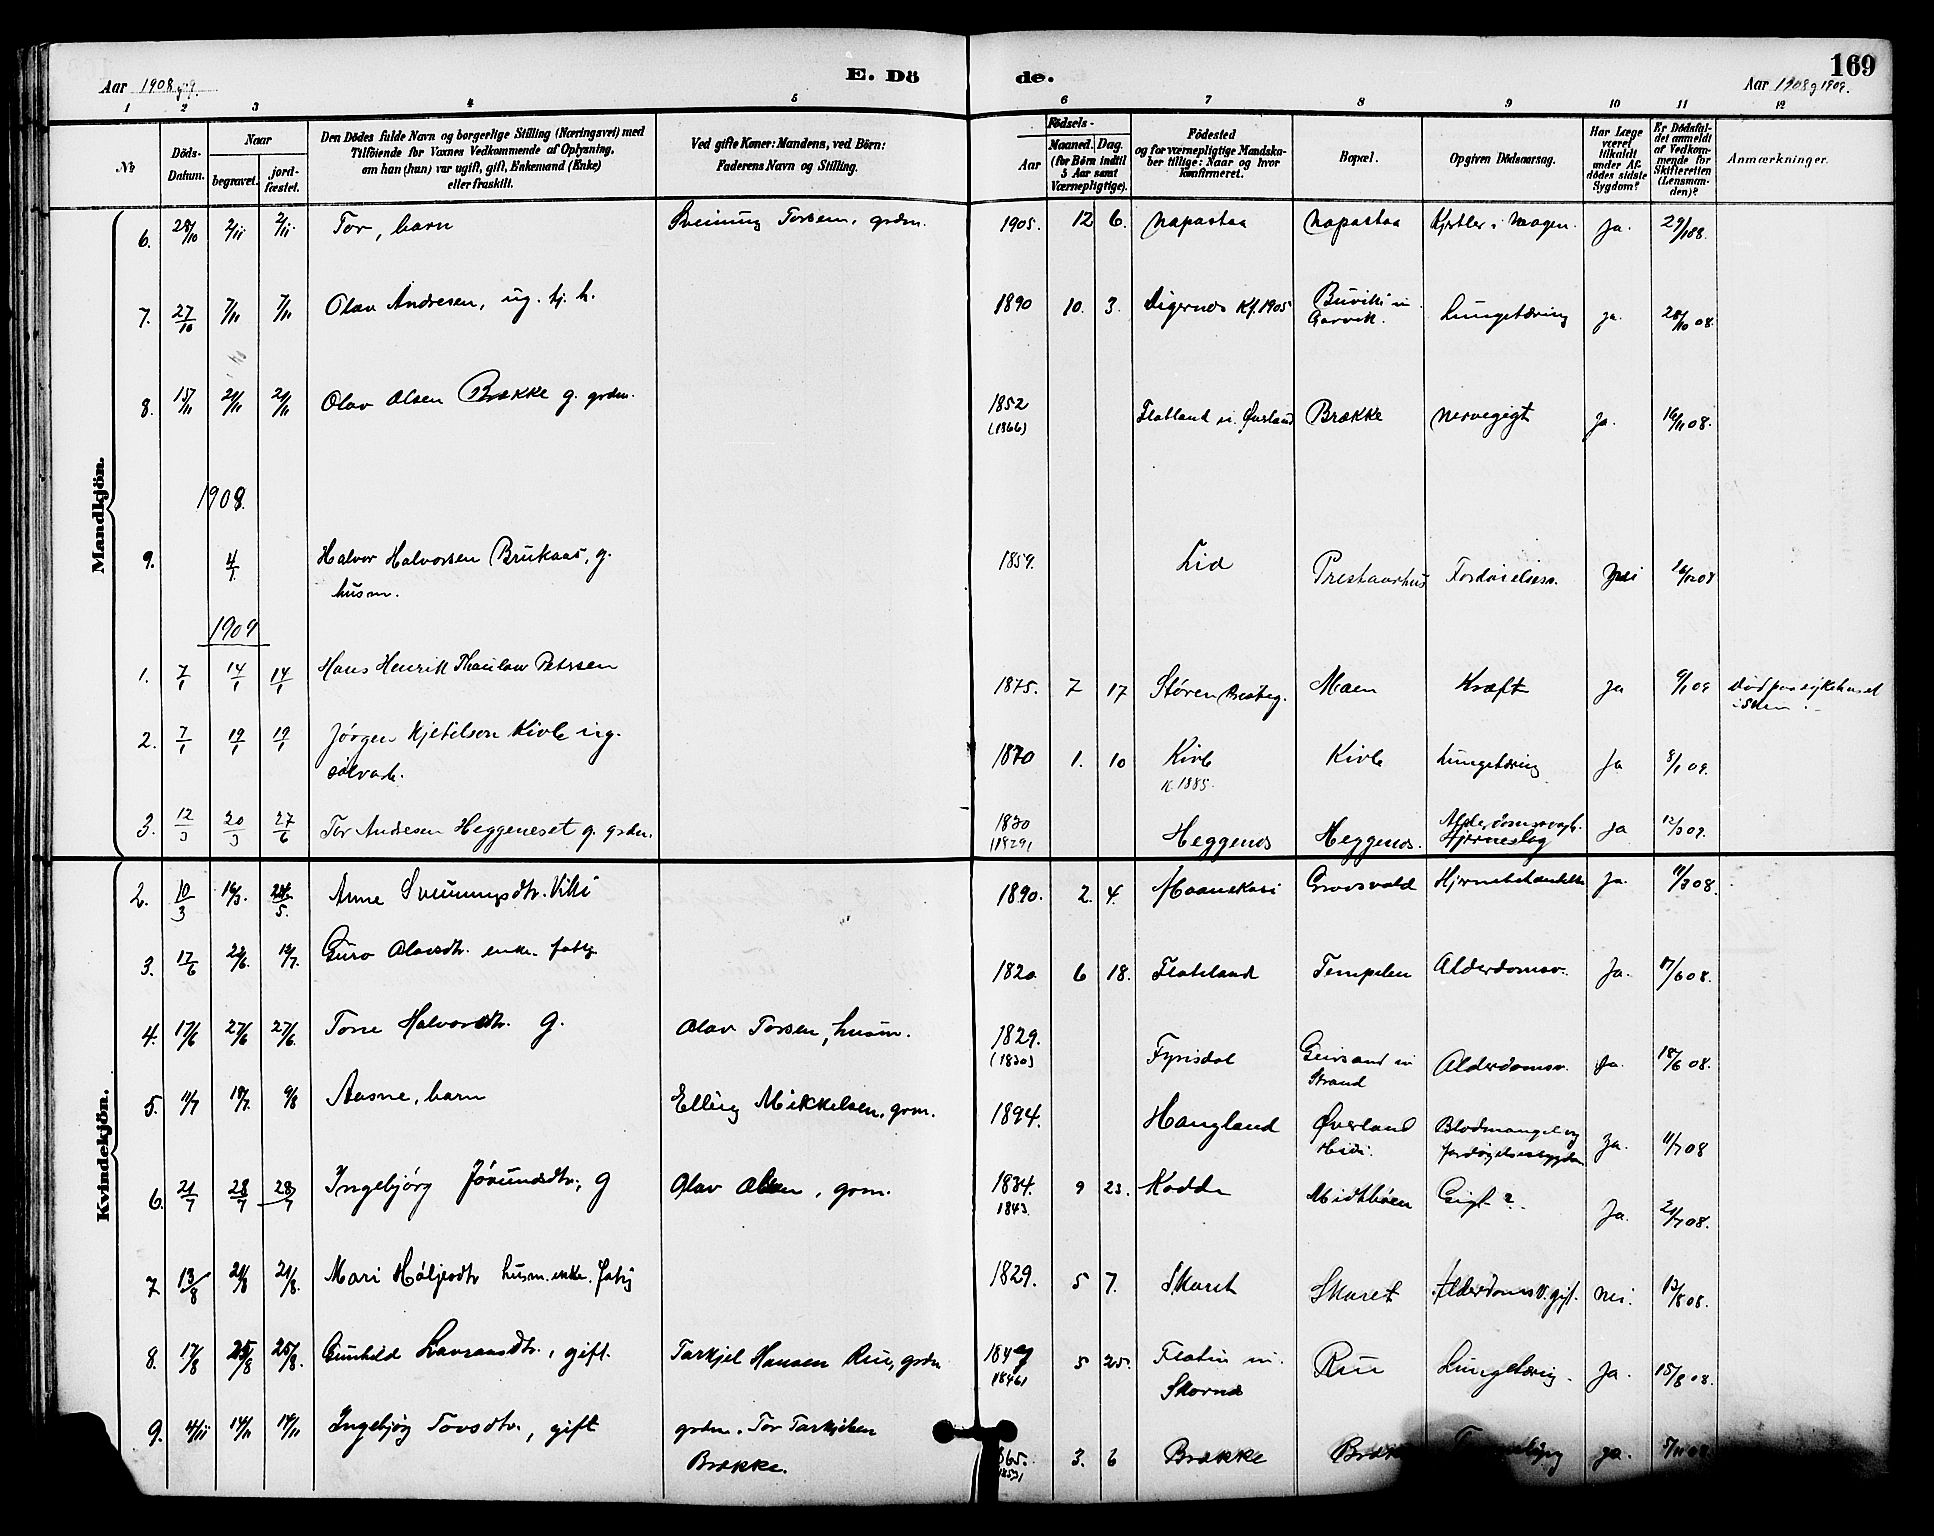 169
Aar 1908 og 9. E. Dö de. Aar 1908 og 1909.
1 2 3 4 5 6 7 8 9 10 11 12
№
Döds-Datum.
Naar
begravet.
jord-fæstet.
Den Dödes fulde Navn og borgerlige Stilling (Næringsvei) med
Tilföiende for Voxnes Vedkommende af Oplysning,
om han (hun) var ugift, gift, Enkemand (Enke)
eller fraskilt.
Ved gifte Koner: Mandens, ved Börn:
Faderens Navn og Stilling.
Födsels-
Aar
Maaned. Dag.
(for Börn indtil
5 Aar samt
Værnepligtige).
Födested
og for værnepligtige Mandska-
ber tillige: Naar og hvor
konfirmeret.
Bopæl.
Opgiven Dödsaarsag.
Har Læge
været
tilkaldt
under Af-
dödes sidste
Sygdom?
Er Dödsfal-
det anmeldt
af Vedkom-
mende for
Skifteretten
(Lensman-
den)?
Anmærkninger.
Mandkjön.
6. 28/10 2/11 2/11 Tor, barn Sveinung Torsen, grdm. 1905. 12 6. Napastaa Napastaa Kjertler i Maagen. Ja. 29/1 08.
7. 27/10 7/11 7/11 Olav Andresen, ug. hj. h. 1890 10. 3. Digernes Kf. 1905 Buviki u/ Garvik. Lungetæring Ja. 28/10 08.
8. 15/11 21/11 21/11 Olav Olsen Brække g. grdm. 1852 (1866) Flatland u. Øverland Brække Nervegigt Ja. 16/11 08.
1908.
9. 4/1 Halvor Halvorsen Brukaas, g. 1859. Lid Prestaarhus Fordøielsess. Nei
husm.
1909
1. 7/1 14/1 14/1 Hans Henrik Thaulow Petersen 1875. 7 17 Støren Presteg. Moen Kræft Ja 9/1 09 Død paa sykehuset
i Skien.
2. 7/1 19/1 19/1 Jørgen Kjetilson Kivle ug. 1870 1. 10 Kivle Kivle Lungetæring Ja 8/1 09.
K. 1885.
3. 12/3 20/3 27/6 Tor Andresen Heggeneset g. grdm. 1830 (1829) Heggenes Heggenes. Alderdomssvagh. Hjerneslag Ja 12/3 09.
Kvindekjön.
2. 10/3 16/3. 24/5. Anne Sveinungsdtr. Viki 1890. 2. 4. Maanekasi Groosvold Ja. 11/3 08.
3. 17/6 22/6. 12/7. Guro Olavsdtr. enke. fattig 1820 6 18. Flateland Tempelen Alderdomssv. Ja. 17/6 08.
4. 17/6 27/6 27/6. Tone Halvorsdtr. g. Olav Torsen, husm. 1829. (1830) Fyrisdal Geirsand u/ Strand Alderdomsv. Ja. 18/6 08.
5. 11/7 18/7. 9/8 Aasne, barn Elling Mikkelsen, grm. 1894. Haugland Øverland Heidi. Blodmangel og fordøyelsessygdom Ja. 11/7 08
6. 21/7 28/7 28/7 Ingebjørg Jørundsdtr., g Olav Olsen, grm. 1834. 1843. 9 23. Kodde Midtbøen Gigt? Ja. 21/7 08.
7 13/8 21/8 21/8. Mari Høljesdtr husm. enke. fattig 1829. 5 7. Skaret Skaret Alderdomsv. gigt. Nei. 13/8 08.
8. 17/8 25/8 25/8. Gunhild Lavransdtr., gift. Tarkjel Hansen Rui, grdm 1847 (1846) 5 25. Flatin u. Rui Lungetæring. Ja. 18/8 08.
9. 4/11 14/11 14/11 Ingebjørg Tovsdtr., gift grdm. Tor Tarkjelsen 3. 6 Brække Ja. 5/11 08
Brække.